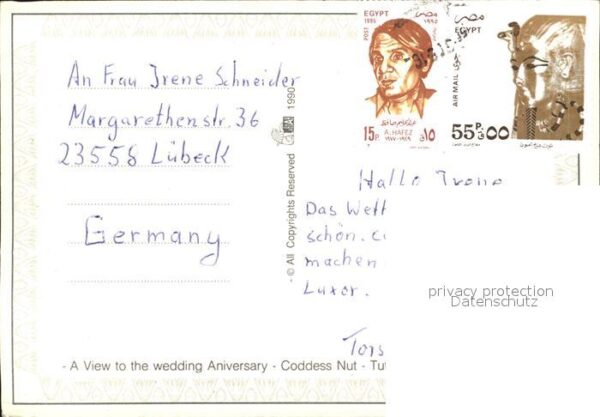 An Frau Irene Schneider
Margarethenstr. 36
23558 Lübeck
Germany
EGYPT
مصر
1995
١٩٩٥
POST
عبدالحليم حافظ
15P.
A.HAFEZ
١٥
EGYPT
مصر
AIR MAIL
55P.
توت عنخ آمون
Hallo Irene
Das Wett
schön.
machen
Luxor.
Tors
privacy protection
Datenschutz
- © All Copyrights Reserved
1990
- A View to the wedding Aniversary - Coddess Nut - Tut